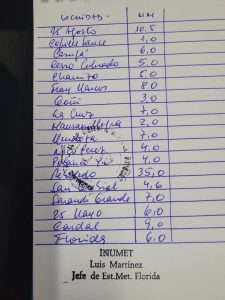 MM
25 Agosto 10.5
1,0
6.0
Cerro Colorado 5.0
Chamizo 5.0
Fray Marcos 8.0
Goñi 3.0
La Cruz 7.0
2,0
Mendoza 7.0
4.0
Polanco Yi 4.0
35,0
San Gabriel 4,6
Sarandí Grande 7,0
25 Mayo 6,0
Cardal 9,0
Florida 6,0
INUMET
Luis Martínez
Jefe de Est.Met. Florida